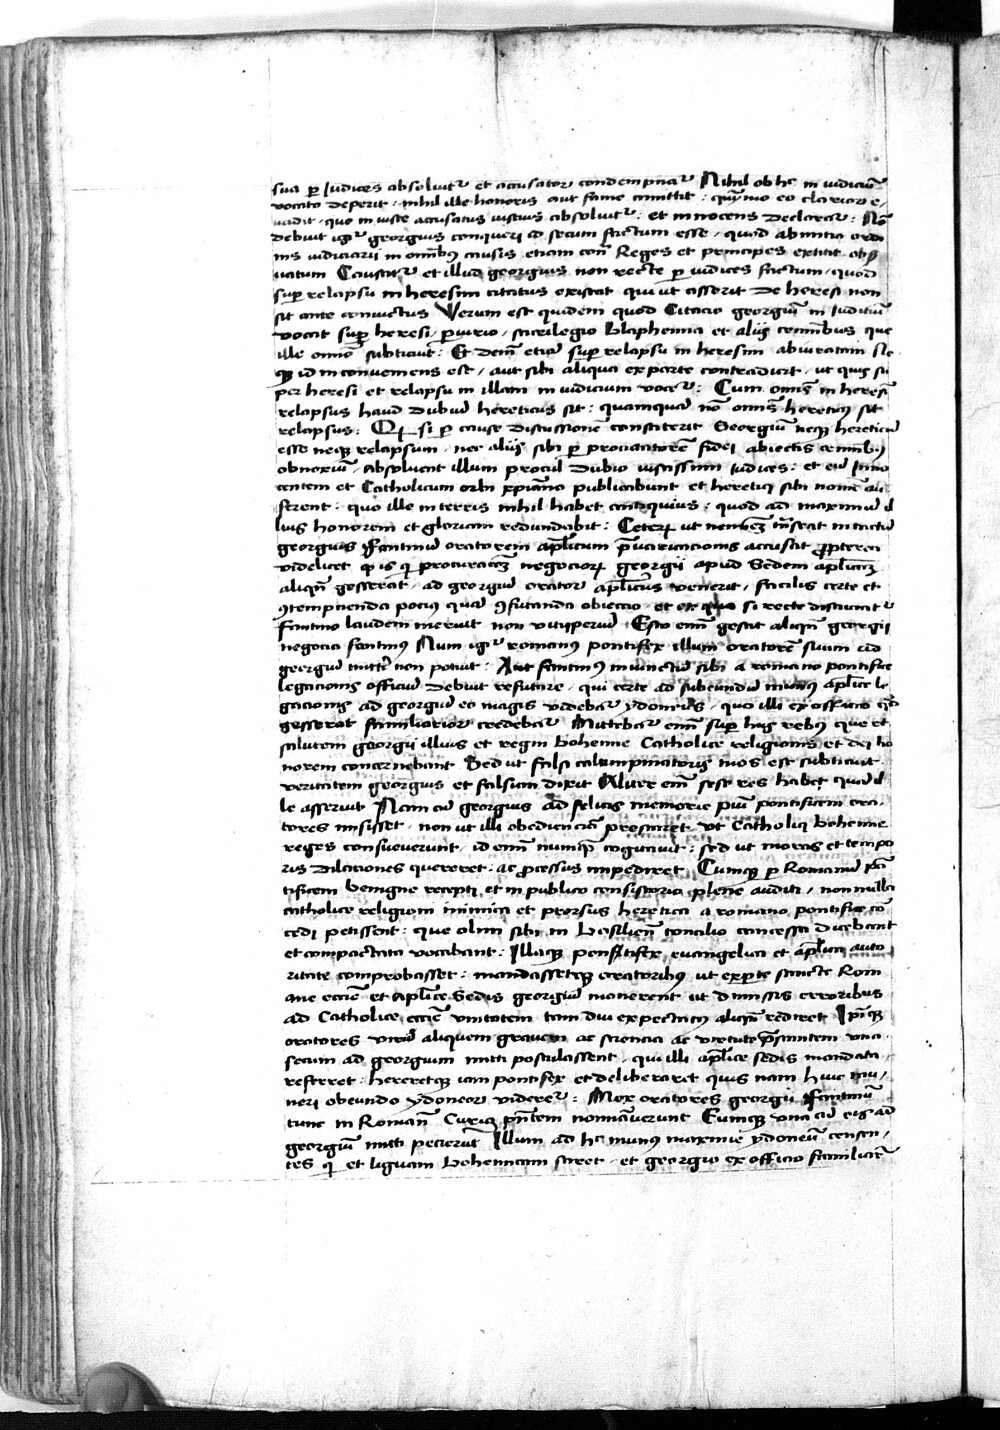 sua p iudices absoluitᷣ et accusator condempnatᷣ Nihil ob hc in iudiciū
vocato deperit · nihil ille honoris aut fame amittit : quīmo eo clarior e
uadit · quo iniuste accusatus iustius absoluitᷣ : et innocens declaratᷣ : Nō
debuit igᷣ georgius conqueri id secum factum esse · quod ab initio ordi
nis iudiciarii in omībꝰ causis etiam con̄ Reges et principes extitit obß
uatum Causatᷣ et illud georgius non recte p iudices factum · quod
suꝑ relapsu in heresim citatus existat qui ut asserit de heresi non
sit ante conuictus Verum est quidem quod Citacio georgiū in Iudiciū
vocat suꝑ heresi / piurio / sacrilegio blasphemia et aliis criminibus que
ille omīo subticuit : Et demū etiā suꝑ relapsu in heresim abiuratam Ne
qꝫ id inconueniens est / aut sibi aliqua ex parte contradicit · ut quis su
per heresi et relapsu in illam in iudicium vocetᷣ : Cum omīs in heresī
relapsus haud dubiū hereticus sit : quamquā nō omīs hereticꝰ sit
relapsus : Qꝙ si p cause discussionē constiterit Georgiū neqꝫ hereticū
esse neqꝫ relapsum · nec aliis sibi p procuratorē fidei obiectis criminibꝰ
obnoxiū · absoluent illum procul dubio iustissimi iudices : et eū inno
centem et Catholicum orbi xp̄iano publicabunt et heretici sibi nomē au
ferent : quo ille in terris nihil habet antiquius : quod ad maximū il
lius honorem et gloriam redundabit : Ceterꝝ ut neminē transeat intactū
georgius Fantinū oratorem ap̄licum p̄uaricacionis accusat Propterea
videlicet qꝙ is qui procuracōeꝫ negociorꝝ georgii apud Sedem ap̄licaꝫ
aliqn̄ gesserat · ad georgiū orator ap̄licus venerit / facilis certe et
ꝯtempnenda pocius quā ꝯfutanda obieccio · et ex quo si recte discuciatᷣ
Fantino laudem meruit non vituperiū Esto enim̄ gessit aliqn̄ georgii
negocia fantinꝰ Num igᷣ romanus pontifex illum oratorē suum ad
georgiū mitte non potuit : Aut fantinꝰ iniunctū sibi a romano pontifice
legacionis officiū debuit refutare · qui certe ad subeundū munꝰ ap̄lice le
gacionis ad georgiū eo magis videbatᷣ ydoneus · quo illi ex officio qd̄
gesserat familiarior credebatᷣ Mittebatᷣ enim̄ suꝑ his rebꝰ que et
salutem georgii illius et regni bohemie Catholice religionis et dei ho
norem concernebant Sed ut falsi calumpniatoris mos est subticuit
veritatem georgius et falsum dixit Aliter enim̄ sese res habet quā il
le asseruit Nam cū georgius ad felicis memorie piū pontificem ora
tores misisset · non ut illi obedienciā prestaret ut Catholici bohemie
reges consueuerunt / id enim̄ nunqꝫ cogitauit : sed ut moras et tempo
ris dilaciones quereret : ac processus impediret Cumqꝫ p Romanū pō
tificem benigne recepti et in publico consistorio plene auditi / nonnulla
catholice religioni inimica et prorsus heretica a romano pontifice cō
cedi petissent : que olim sibi in basilien̄ concilio concessa dicebant
et compactata vocabant : Illaqꝫ pontifex euangelica et ap̄lica auto
ritate comprobasset : mandassetqꝫ oratoribꝰ ut ex parte sancte Rom
ane ecc̄ie et ap̄lice sedis georgiū monerent ut dimissis erroribus
ad Catholice ecc̄ie vnitatem tam diu expectatꝰ aliqn̄ rediret Ipīqꝫ
oratores virū aliquem grauem ac sciencia ac virtute p̄stantem vna
secum ad georgium mitti postulassent · qui illi ap̄lice sedis mandata
referret : hereretqꝫ iam pontifex et deliberaret quis nam huic mu
neri obeundo ydoneor videretᷣ : Mox oratores georgii Fantinū
tunc in Roman̄ Curia p̄ntem nominauerunt Eumqꝫ vna cū eis ad
georgiū mitti petierūt Illum ad hc munꝰ maxime ydoneū censen
tes qꝙ et liguam bohemicam sciret · et georgio ex officio familiarᷣ